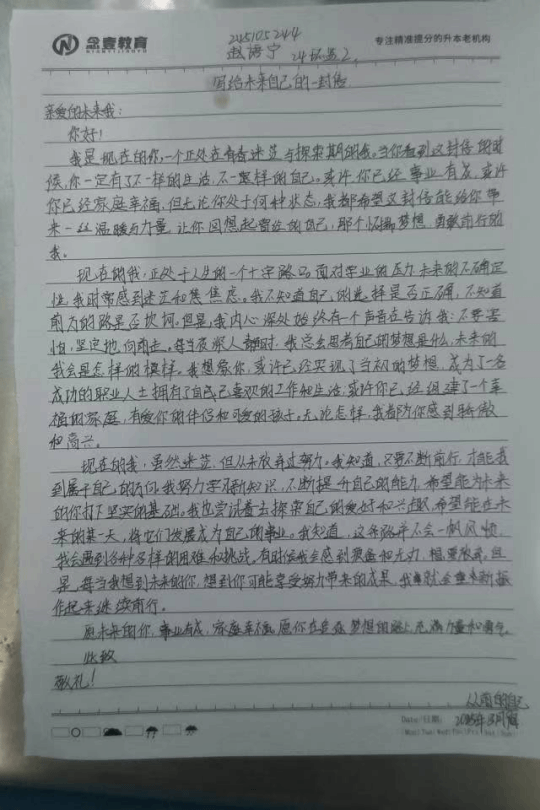 念壹教育
NIANYIJIAOYU
专注精准提分的升本老机构
245105244
赵海宁 24环艺2
写给未来自己的一封信
亲爱的未来我:
你好!
我是现在的你,一个正处在青春迷茫与探索期的我。当你看到这封信的时
候,你一定有了不一样的生活,不一样的自己。或许你已经事业有成,或许
你已经家庭幸福,但无论你处于何种状态,我都希望这封信能给你带
来一丝温暖与力量,让你回想起曾经的自己,那个怀揣梦想,勇敢前行的
我。
现在的我,正处于人生的一个十字路口,面对学业的压力,未来的不确定
性,我时常感到迷茫和焦虑。我不知道自己的选择是否正确,不知道
前方的路是否坎坷。但是,我内心深处始终有个声音在告诉我:不要害
怕,坚定地向前走。每当夜深人静时,我总会思考自己的梦想是什么,未来的
我会是怎样的模样。我想象你,或许已经实现了当初的梦想,成为了一名
成功的职业人士,拥有了自己喜欢的工作和生活;或许你已经组建了一个幸
福的家庭,有爱你的伴侣和可爱的孩子。无论怎样,我都为你感到骄傲
和高兴。
现在的我,虽然迷茫,但从未放弃过努力。我知道,只要不断前行,才能看
到属于自己的方向。我努力学习新知识,不断提升自己的能力,希望能为未来
的你打下坚实的基础。我也尝试着去探索自己的爱好和兴趣,希望能在未
来的某一天,将它们发展成为自己的事业。我知道,这条路并不会一帆风顺,
我会遇到各种各样的困难和挑战,有时候我会感到疲惫和无力,想要放弃。但
是,每当我想到未来的你,想到你可能享受努力带来的成果,我就会重新振
作起来,继续前行。
愿未来的你,事业有成,家庭幸福,愿你在追逐梦想的路上,充满力量和勇气。
此致
敬礼!
Date/日期: 2025年3月
Mon Tue Wed Thu Fri Sat Sun